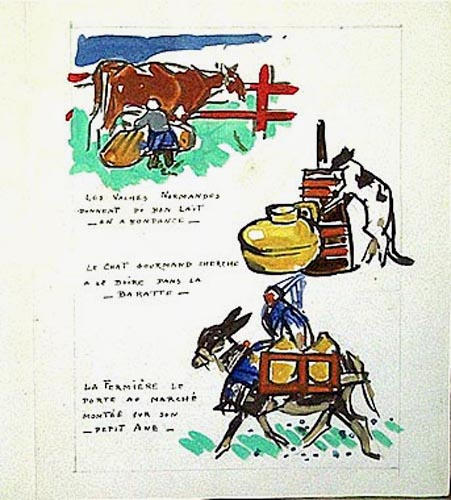 LES VACHES NORMANDES
DONNENT DU BON LAIT
— EN ABONDANCE —
LE CHAT GOURMAND CHERCHE
A LE BOIRE DANS LA
BARATTE —
LA FERMIÈRE LE
PORTE AU MARCHÉ
MONTÉE SUR SON
— PETIT ANE —